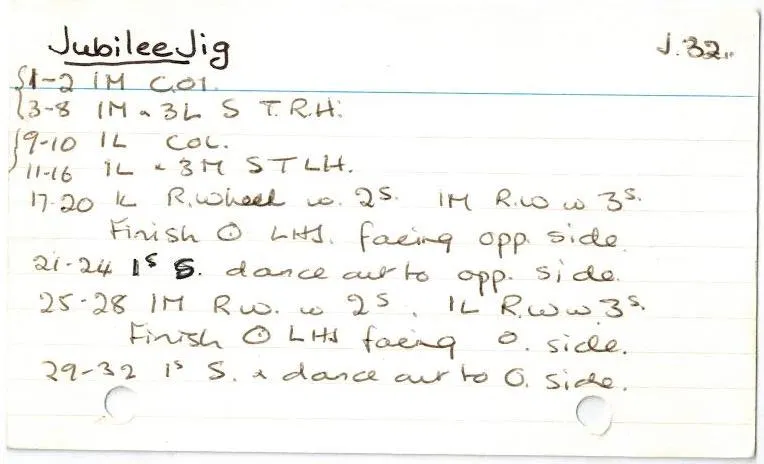 Jubilee Jig J.32.
1-2 1M C.OI.
3-8 1M & 3L S T.R.H.
9-10 1L COI.
11-16 1L & 3M S T LH.
17-20 1L R.Wheel w. 2s. 1M R.W w 3s.
Finish O LHS. facing opp. side.
21-24 1s S. dance out to opp. side.
25-28 1M R.w. w 2s. 1L R.w w 3s.
Finish O LHS facing O. side.
29-32 1s S. & dance out to O. side.